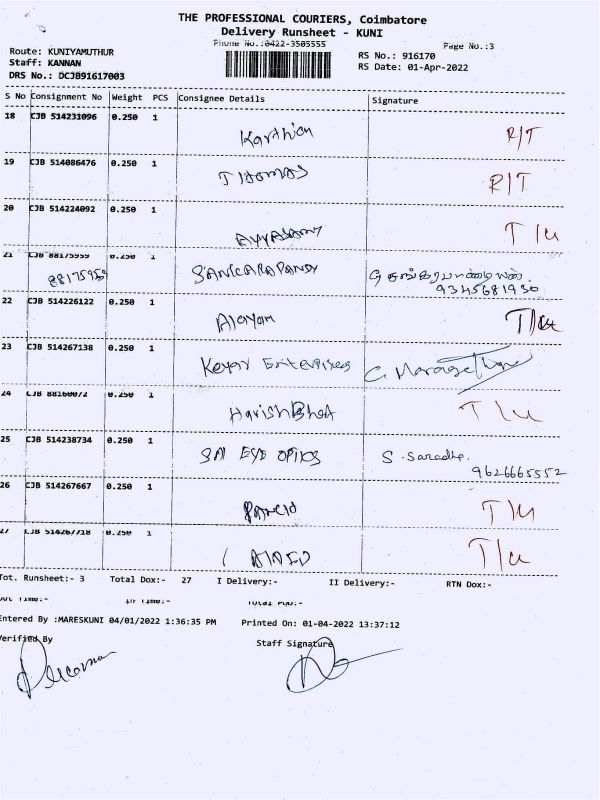 THE PROFESSIONAL COURIERS, Coimbatore
Delivery Runsheet - KUNI
Phone No.:0422-3505555
Page No.:3
Route: KUNIYAMUTHUR
Staff: KANNAN
DRS No.: DCJB91617003
RS No.: 916170
RS Date: 01-Apr-2022
S No Consignment No Weight PCS Consignee Details Signature
18 CJB 514231096 0.250 1
Karthick R/T
19 CJB 514086476 0.250 1
THOMAS R/T
20 CJB 514224092 0.250 1
AYYASAMY T/u
21 CJB 88175959 0.250 1
88175959 SANKARAPANDY
9345681930
22 CJB 514226122 0.250 1
T/u
23 CJB 514267138 0.250 1
Enterprises
24 CJB 88160072 0.250 1
Harish Bhat T/u
25 CJB 514238734 0.250 1
SAI EYE OPTKS S. Saradha.
9626665552
26 CJB 514267667 0.250 1
T/u
27 CJB 514267718 0.250 1
T/u
Tot. Runsheet:- 3 Total Dox:- 27 I Delivery:- II Delivery:- RTN Dox:-
Out Time:- In Time:- Total POD:-
Entered By :MARESKUNI 04/01/2022 1:36:35 PM Printed On: 01-04-2022 13:37:12
Verified By Staff Signature